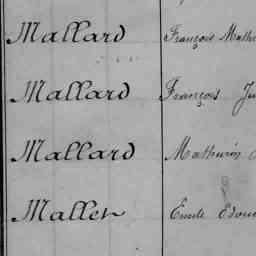 Mallard François Mathu
Mallard François Ju
Mallard Mathurin
Mallet Emile Edou